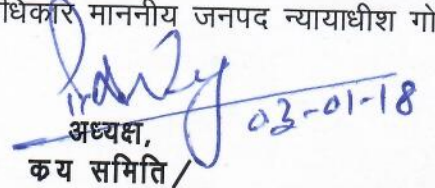 धिकार माननीय जनपद न्यायाधीश गो
03-01-18
अध्यक्ष,
कय समिति/